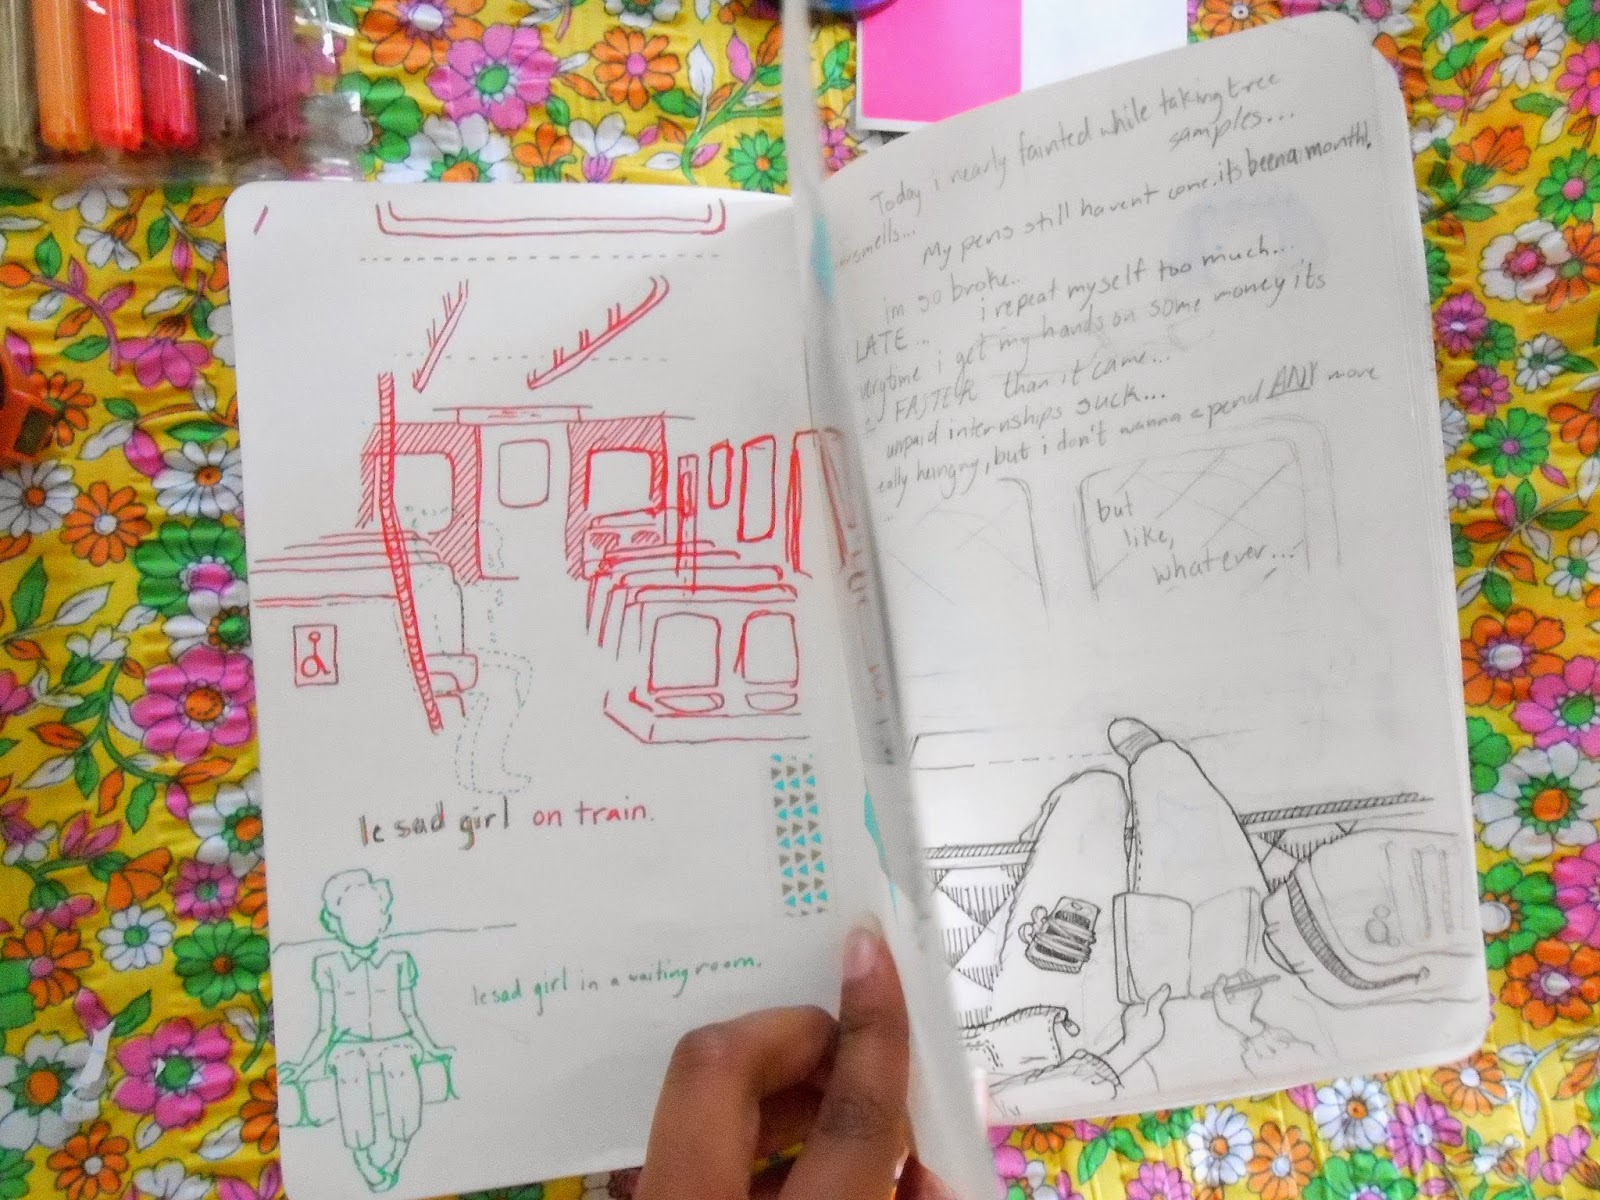 le sad girl on train.
le sad girl in a waiting room.
Today i nearly fainted while taking tree
samples...
smells...
My pens still havent come. its been a month!
im so broke..
i repeat myself too much...
LATE...
i get my hands on some money its
FASTER than it came...
unpaid internships suck...
hungry, but i don't wanna spend ANY more
but
like,
whatever...